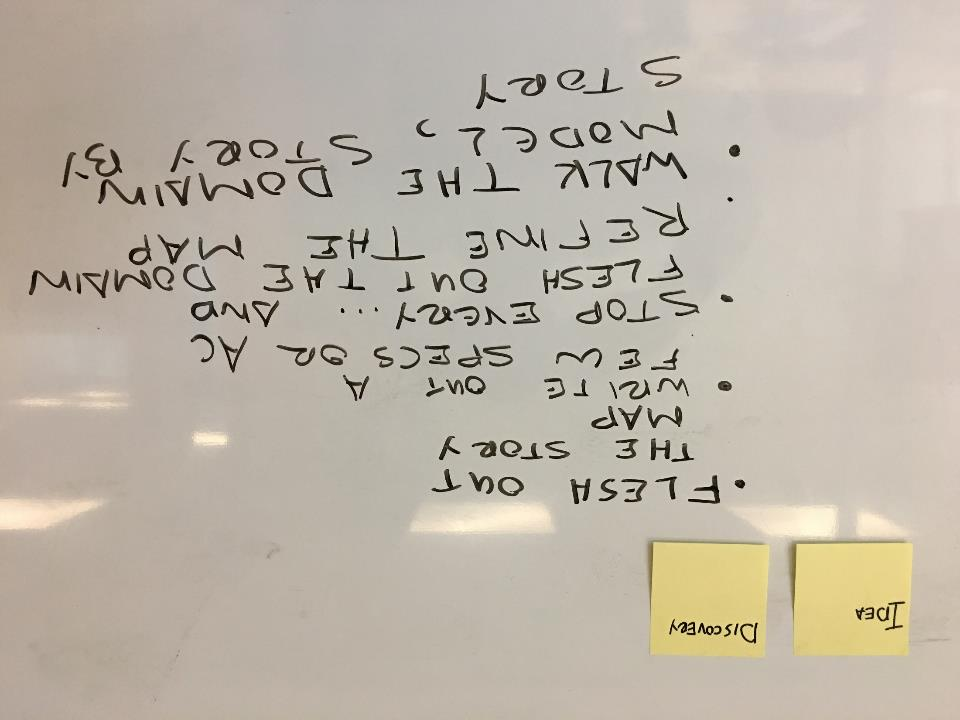 IDEA
DISCOVERY
• FLESH OUT
THE STORY
MAP
• WRITE OUT A
FEW SPECS OR AC
• STOP EVERY... AND
FLESH OUT THE DOMAIN
REFINE THE MAP
• WALK THE DOMAIN
MODEL, STORY BY
STORY